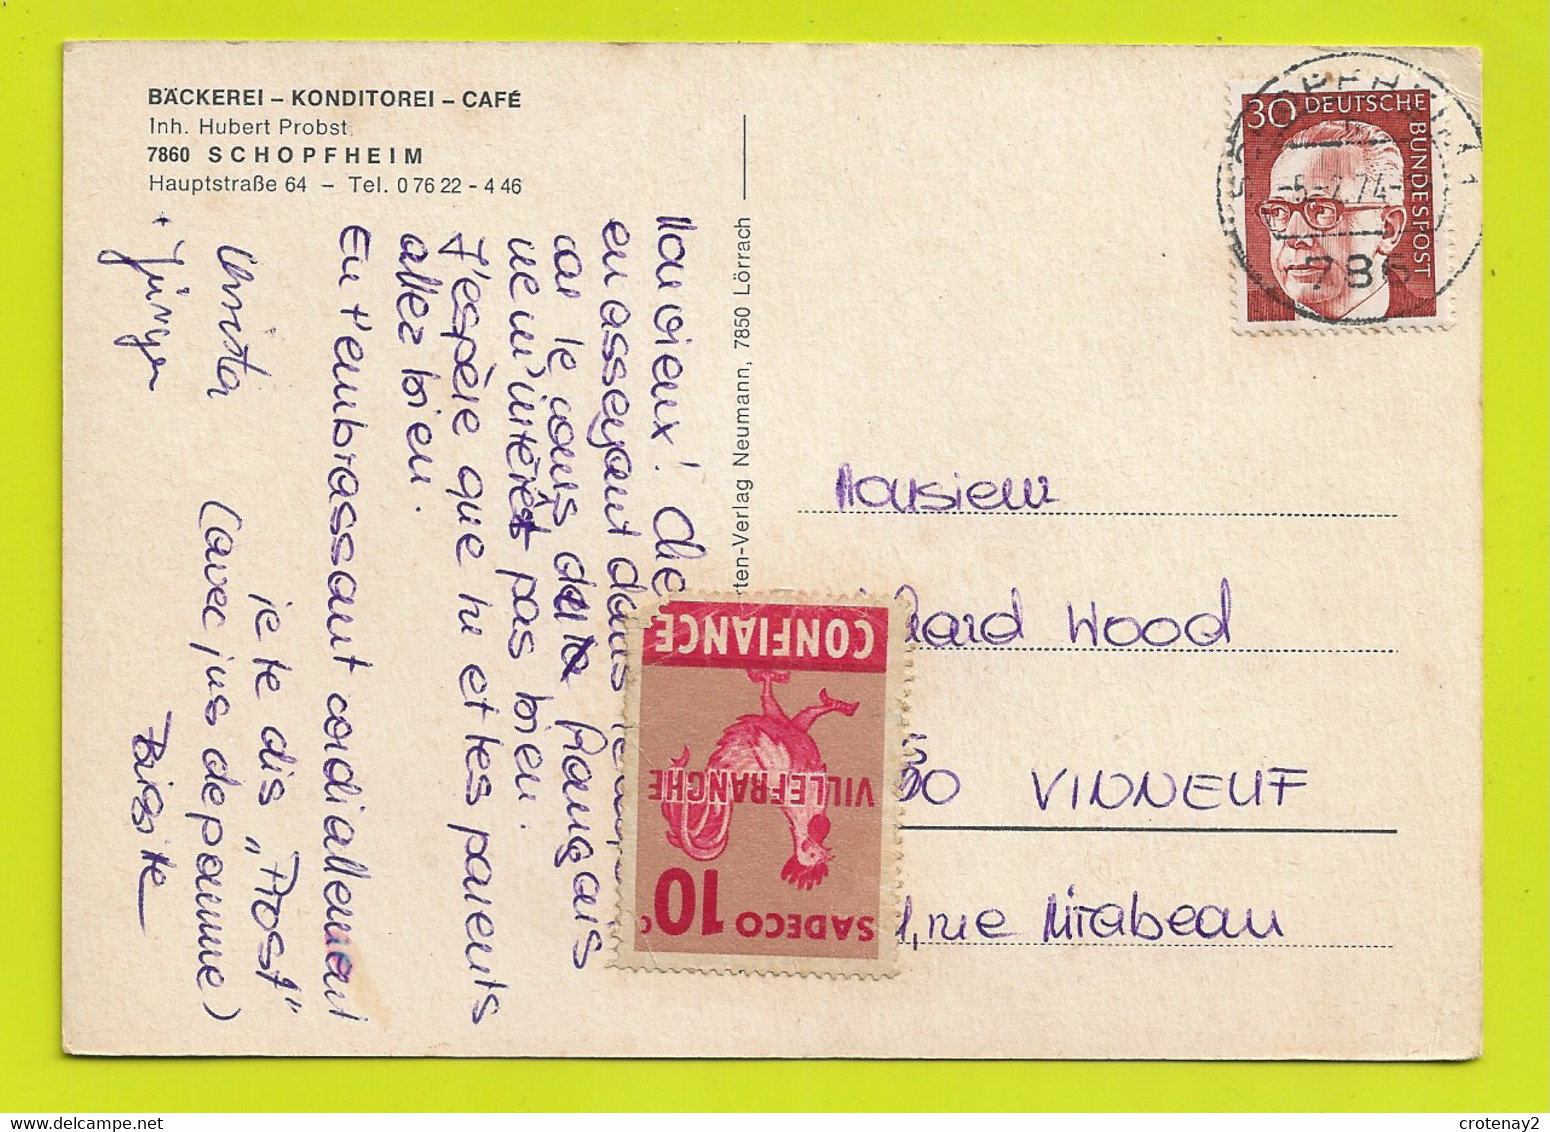 BÄCKEREI – KONDITOREI – CAFÉ
Inh. Hubert Probst
7860 SCHOPFHEIM
Hauptstraße 64 – Tel. 0 76 22 - 4 46
Mon vieux! Che
en asseyant dans
car le cours de français
ne m'intéresse pas bien.
J'espère que tu et tes parents
allez bien.
En t'embrassant cordiallement
je te dis „Prost"
Christa (avec jus de pomme)
+ Jürgen
Brigitte
rten-Verlag Neumann, 7850 Lörrach
30 DEUTSCHE
BUNDESPOST
SCHOPFHEIM 1
-5.-2.74-
786
CONFIANCE
VILLEFRANCHE
10c
SADECO
Monsieur
ard Wood
50 VINNEUF
1, rue Mirabeau
crotenay2